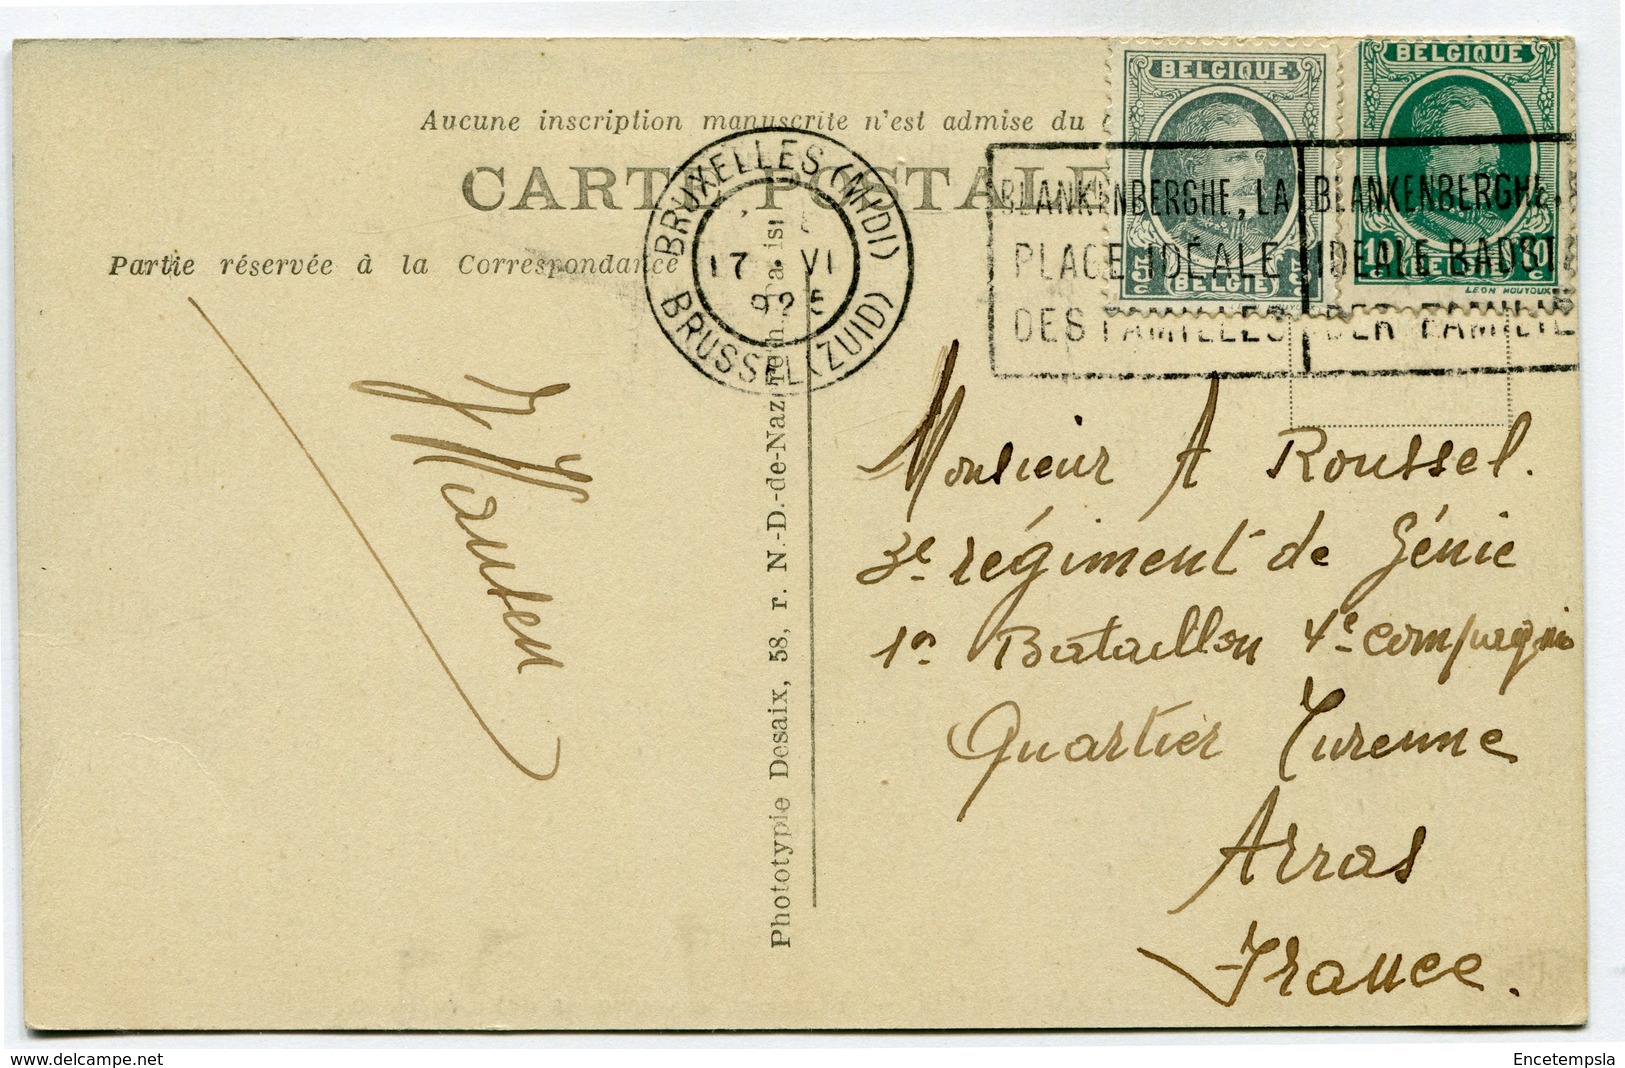 Aucune inscription manuscrite n'est admise du
CARTE POSTALE
Partie réservée à la Correspondance
BRUXELLES (MIDI)
17 VI
925
BRUSSEL (ZUID)
BELGIQUE
5 c 5 c
BELGIE
BELGIQUE
10 c
BELGIE
LEON HOUYOUX
BLANKENBERGHE, LA
PLAGE IDÉALE
DES FAMILLES
BLANKENBERGHE,
IDEALE BADST
DER FAMILIE
Phototypie Desaix, 58, r. N.-D.-de-Nazareth.
Monsieur A Roussel.
3e régiment de Génie
1er Bataillon 4e compagnie
Quartier Turenne
Arras
France.
delcampe.net
Encetempsla